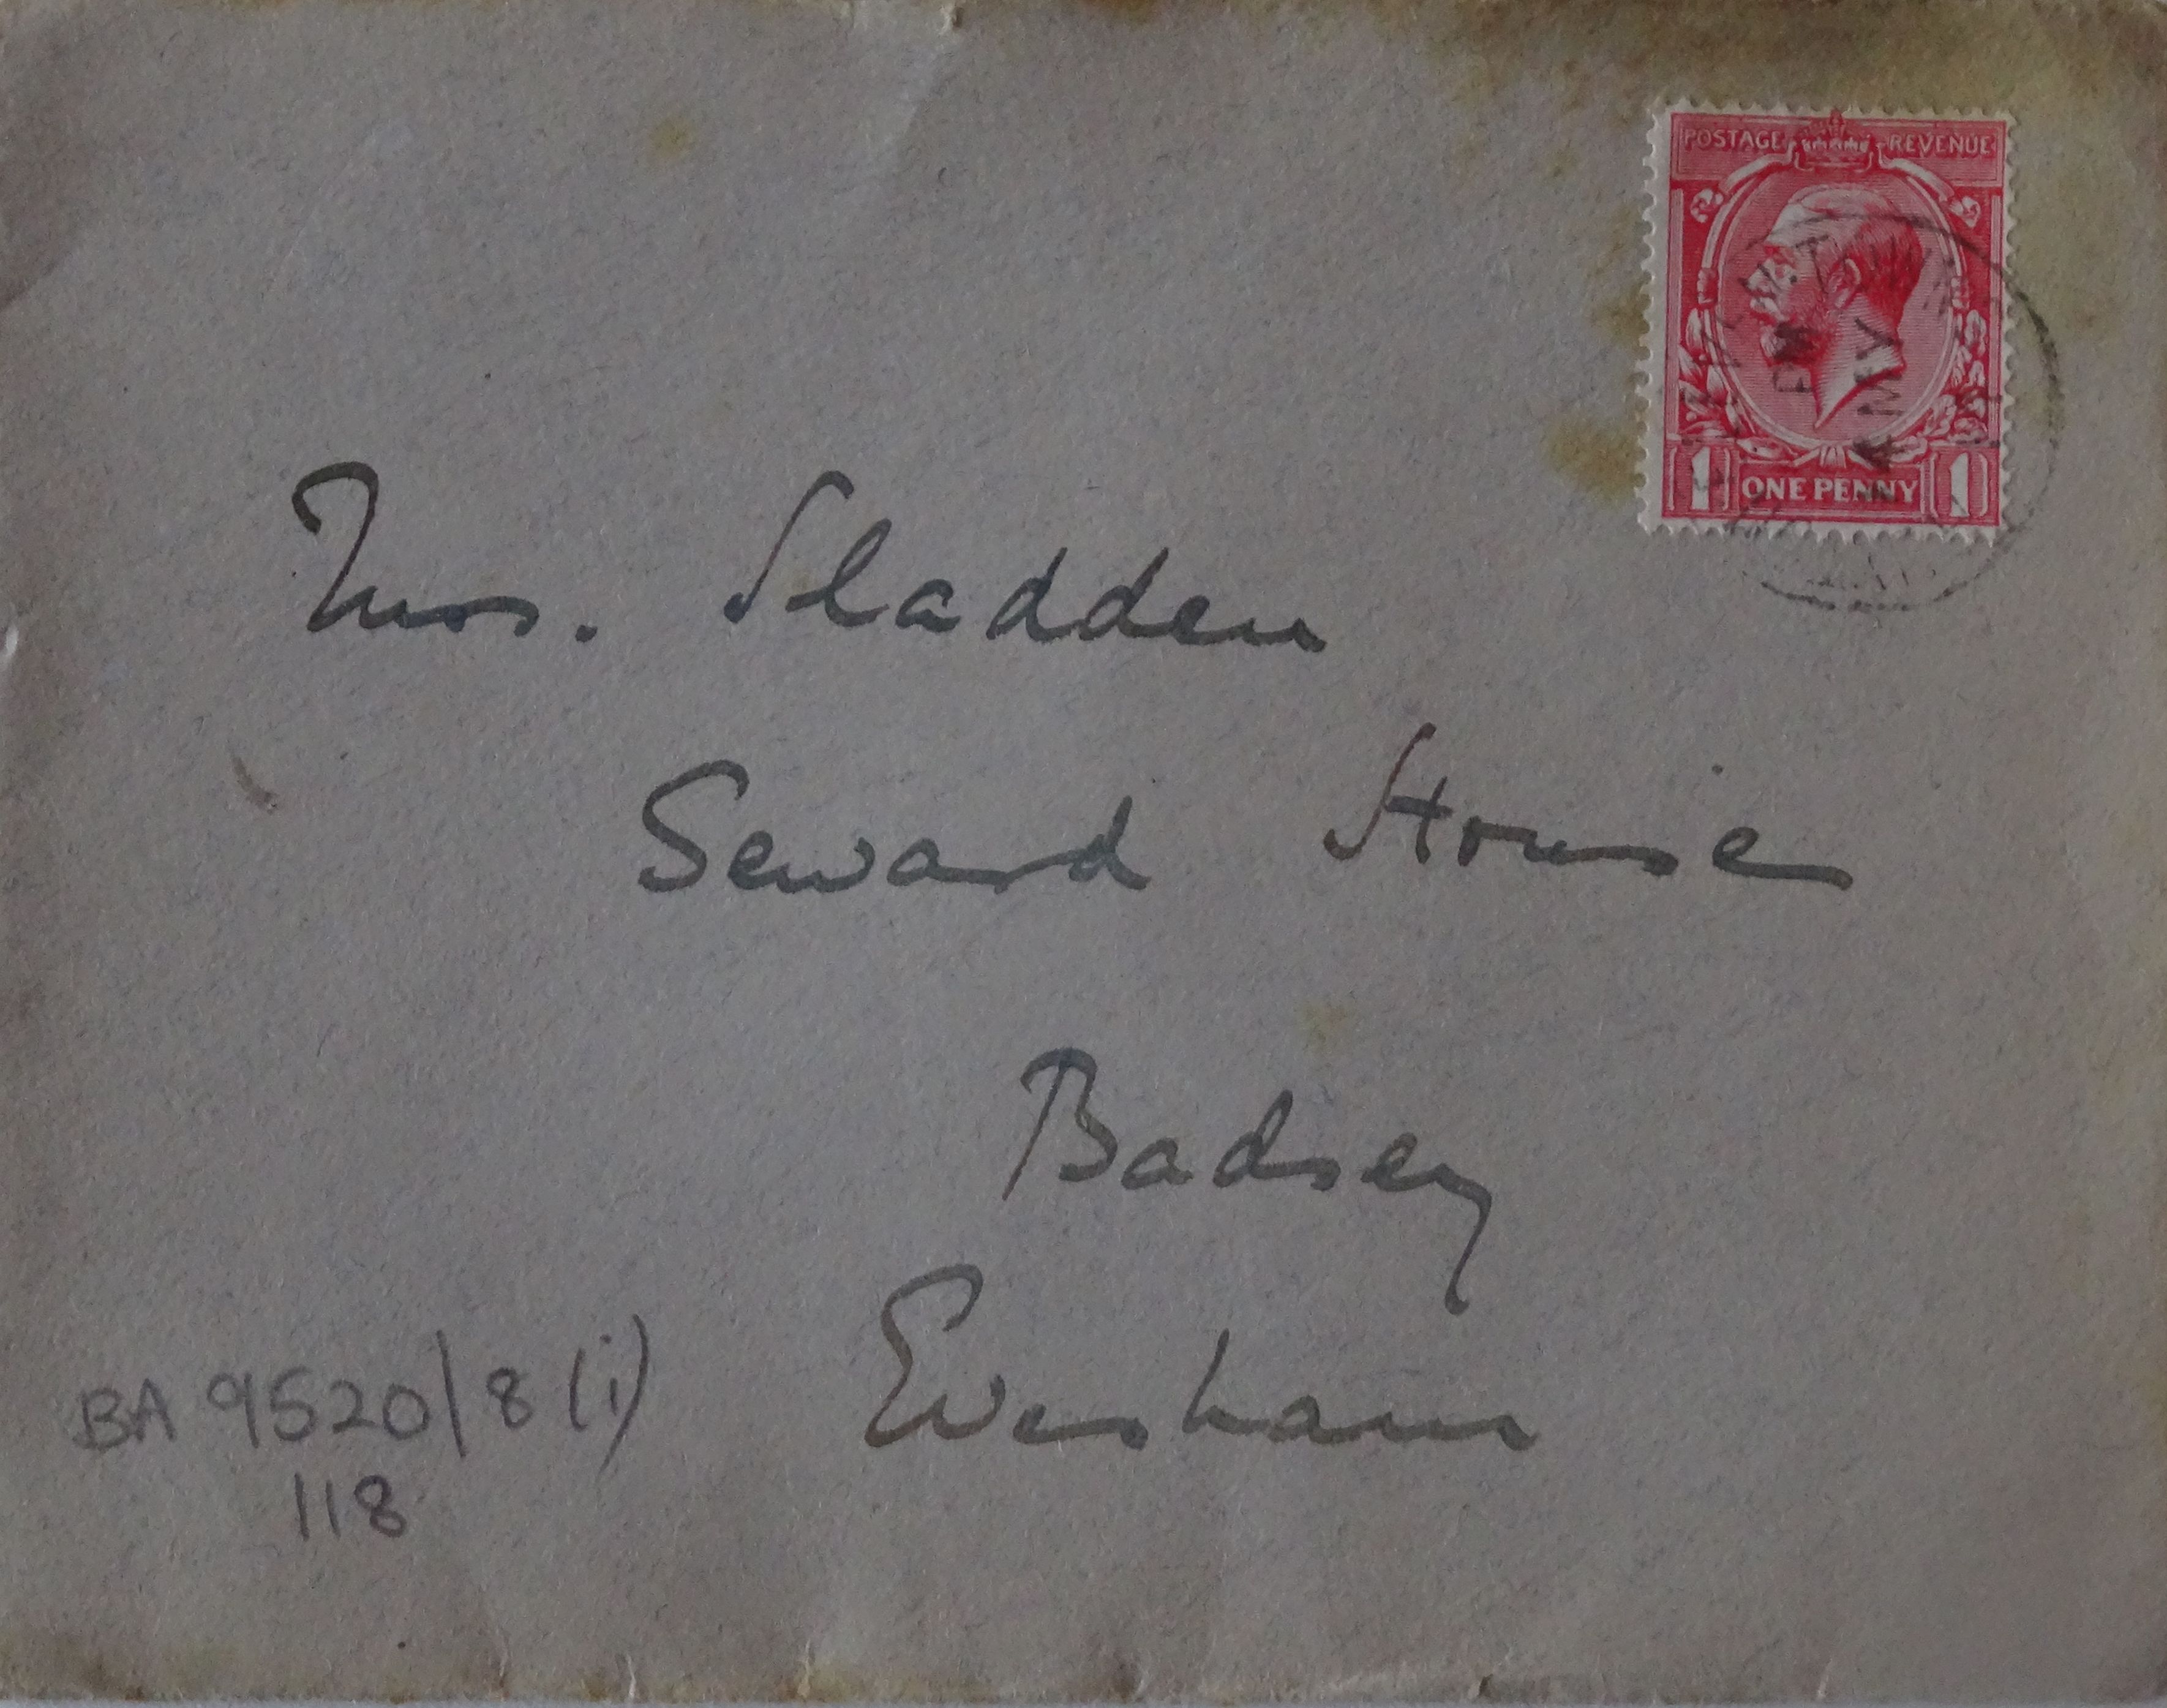 POSTAGE REVENUE
PM
4 MY
1 ONE PENNY 1
Mrs. Sladden
Seward House
Badsey
Evesham
BA 9520/8 (i)
118